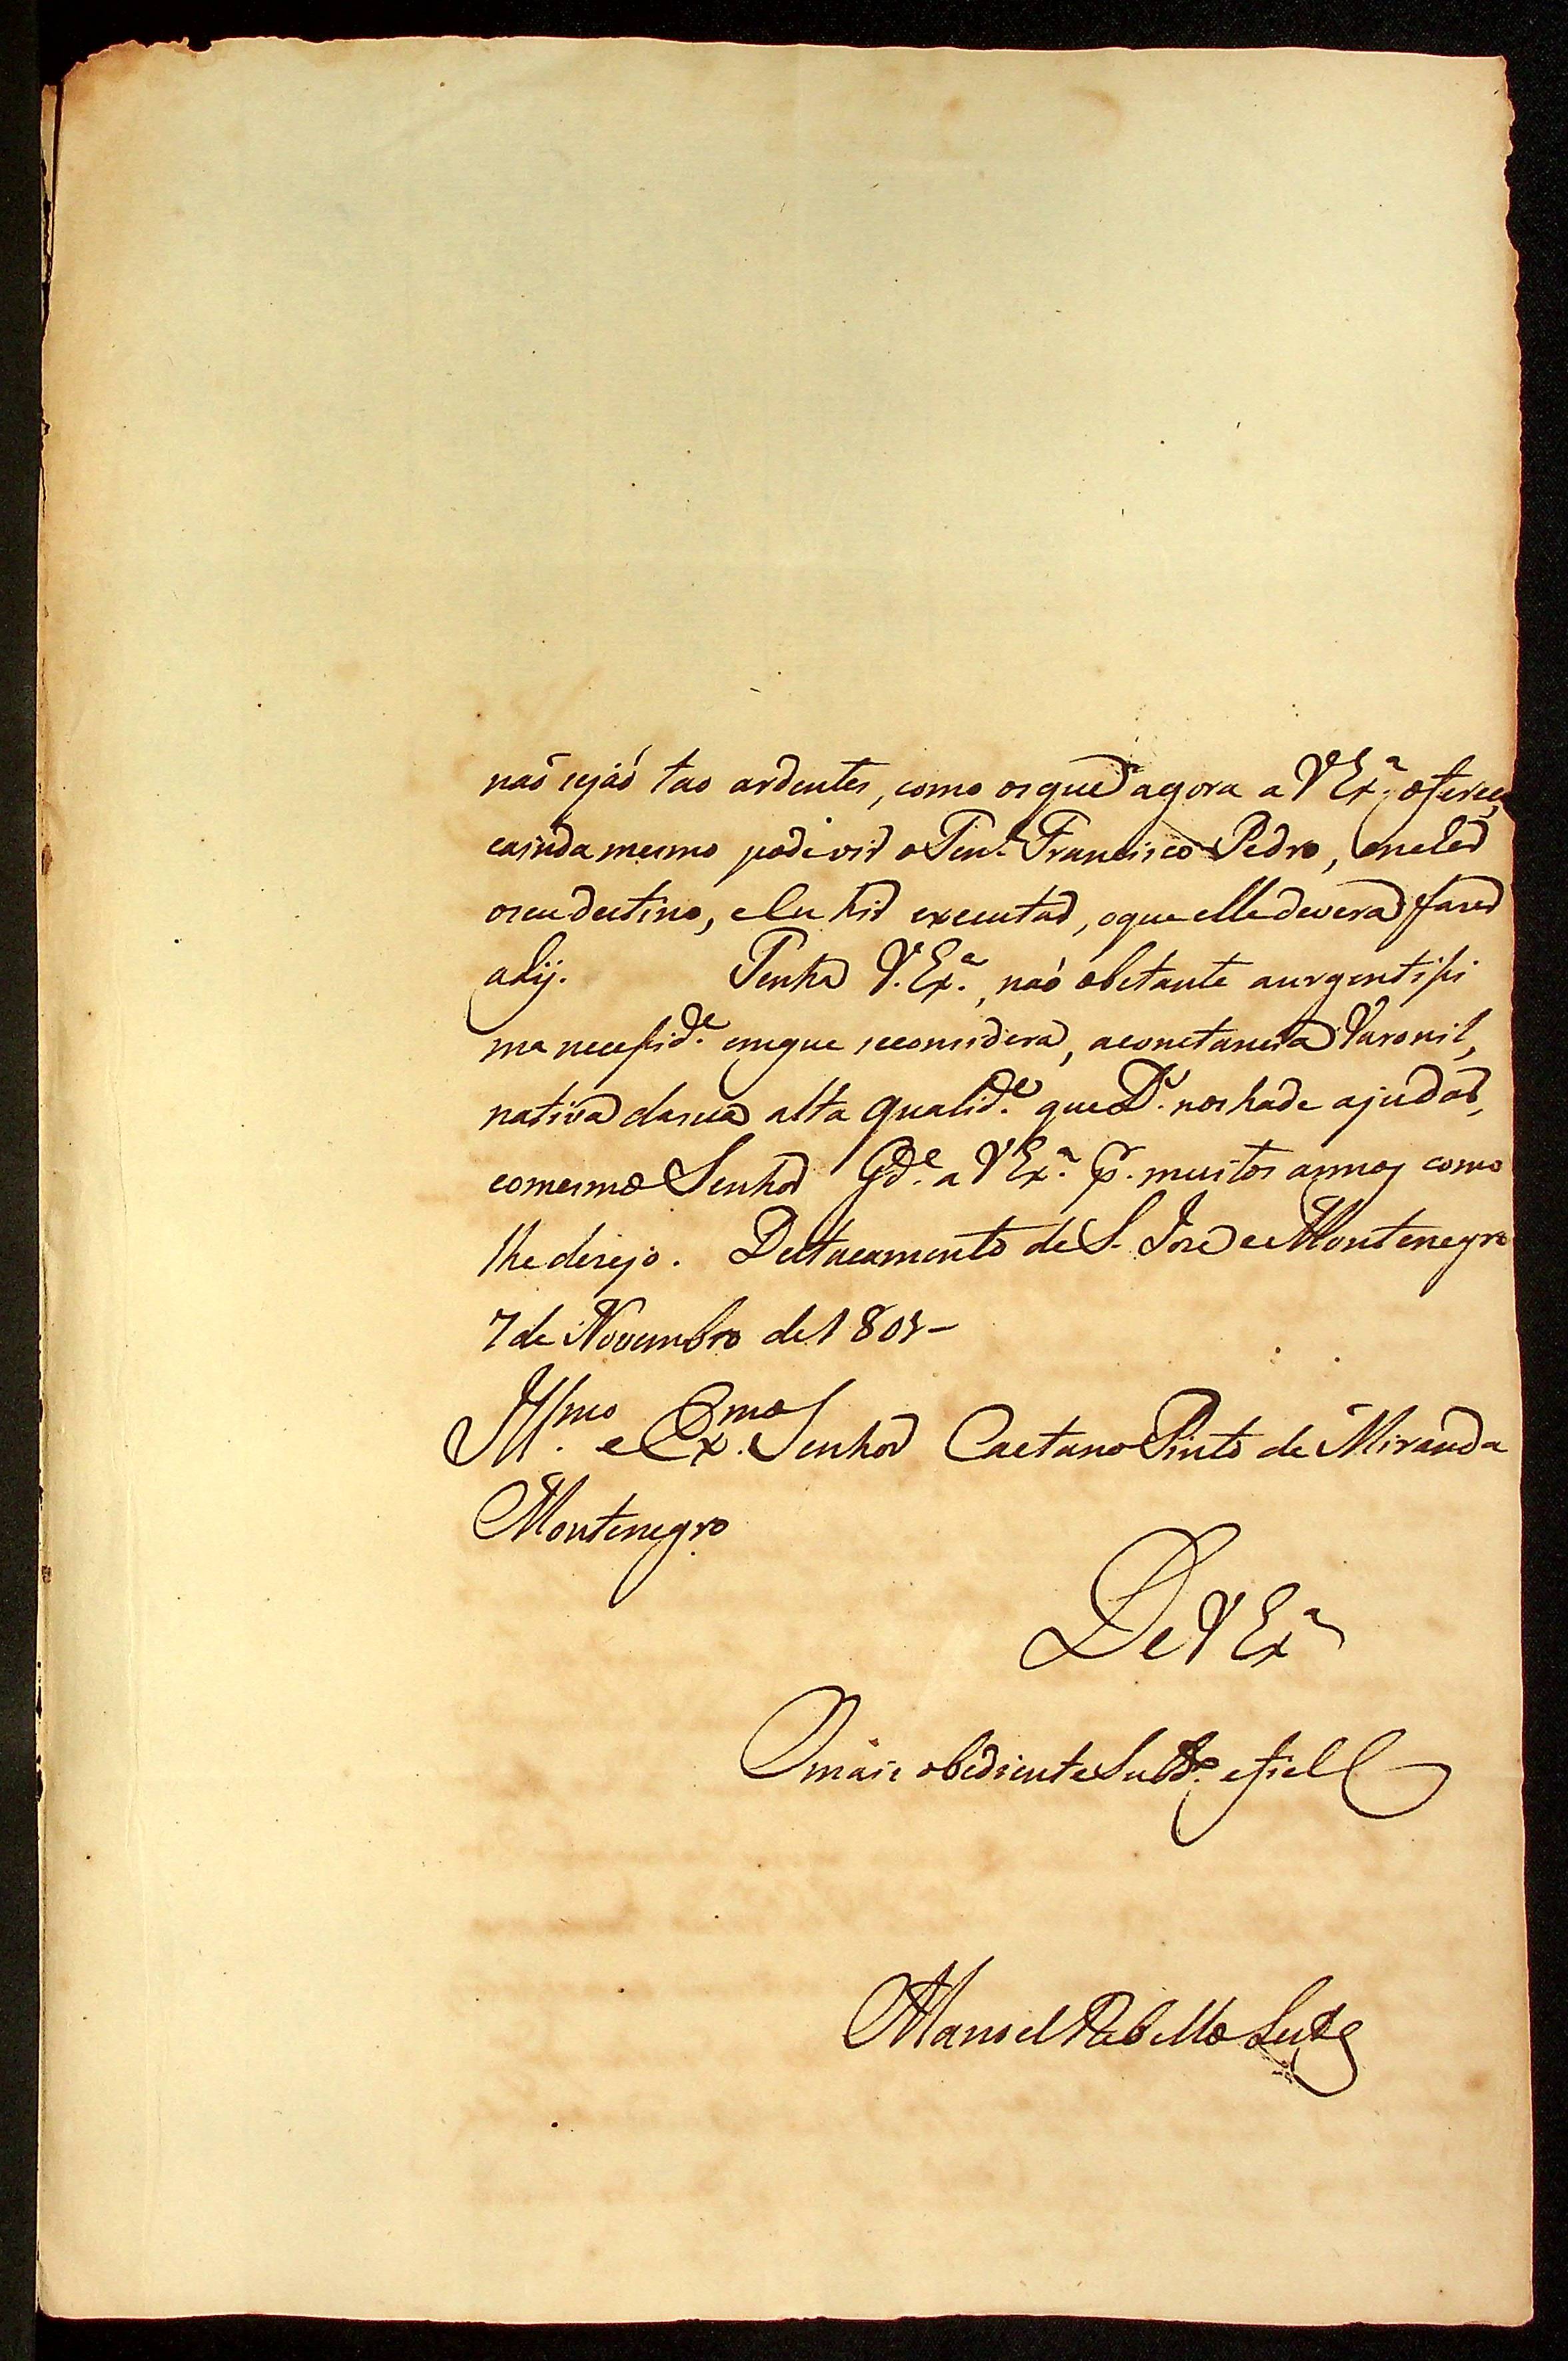 naó sejaó tao ardentes, como osque agora a VEx.ª ofereço,
eainda mesmo pode vir o Ten.e Francisco Pedro, encher
oseu destino, e Eu hir executar, oque elle devera fazer
alij. Tenha V. Ex.ª, naó obstante aurgentissi
ma necessid.e emque seconsidera, aconstancia Varonil,
nativa dasua alta qualid.e que D.s nos hade ajudar,
eomesmo Senhor G.de a VEx.ª p.r muitos annos como
lhe desejo. Destacamento de S. Joze e Montenegro
7 de Novembro de 180
Ill.mo e Ex.mo Senhor Caetano Pinto de Miranda
Montenegro
De VEx.ª
O mais obediente Subd.o e fiel
Manoel Rabello